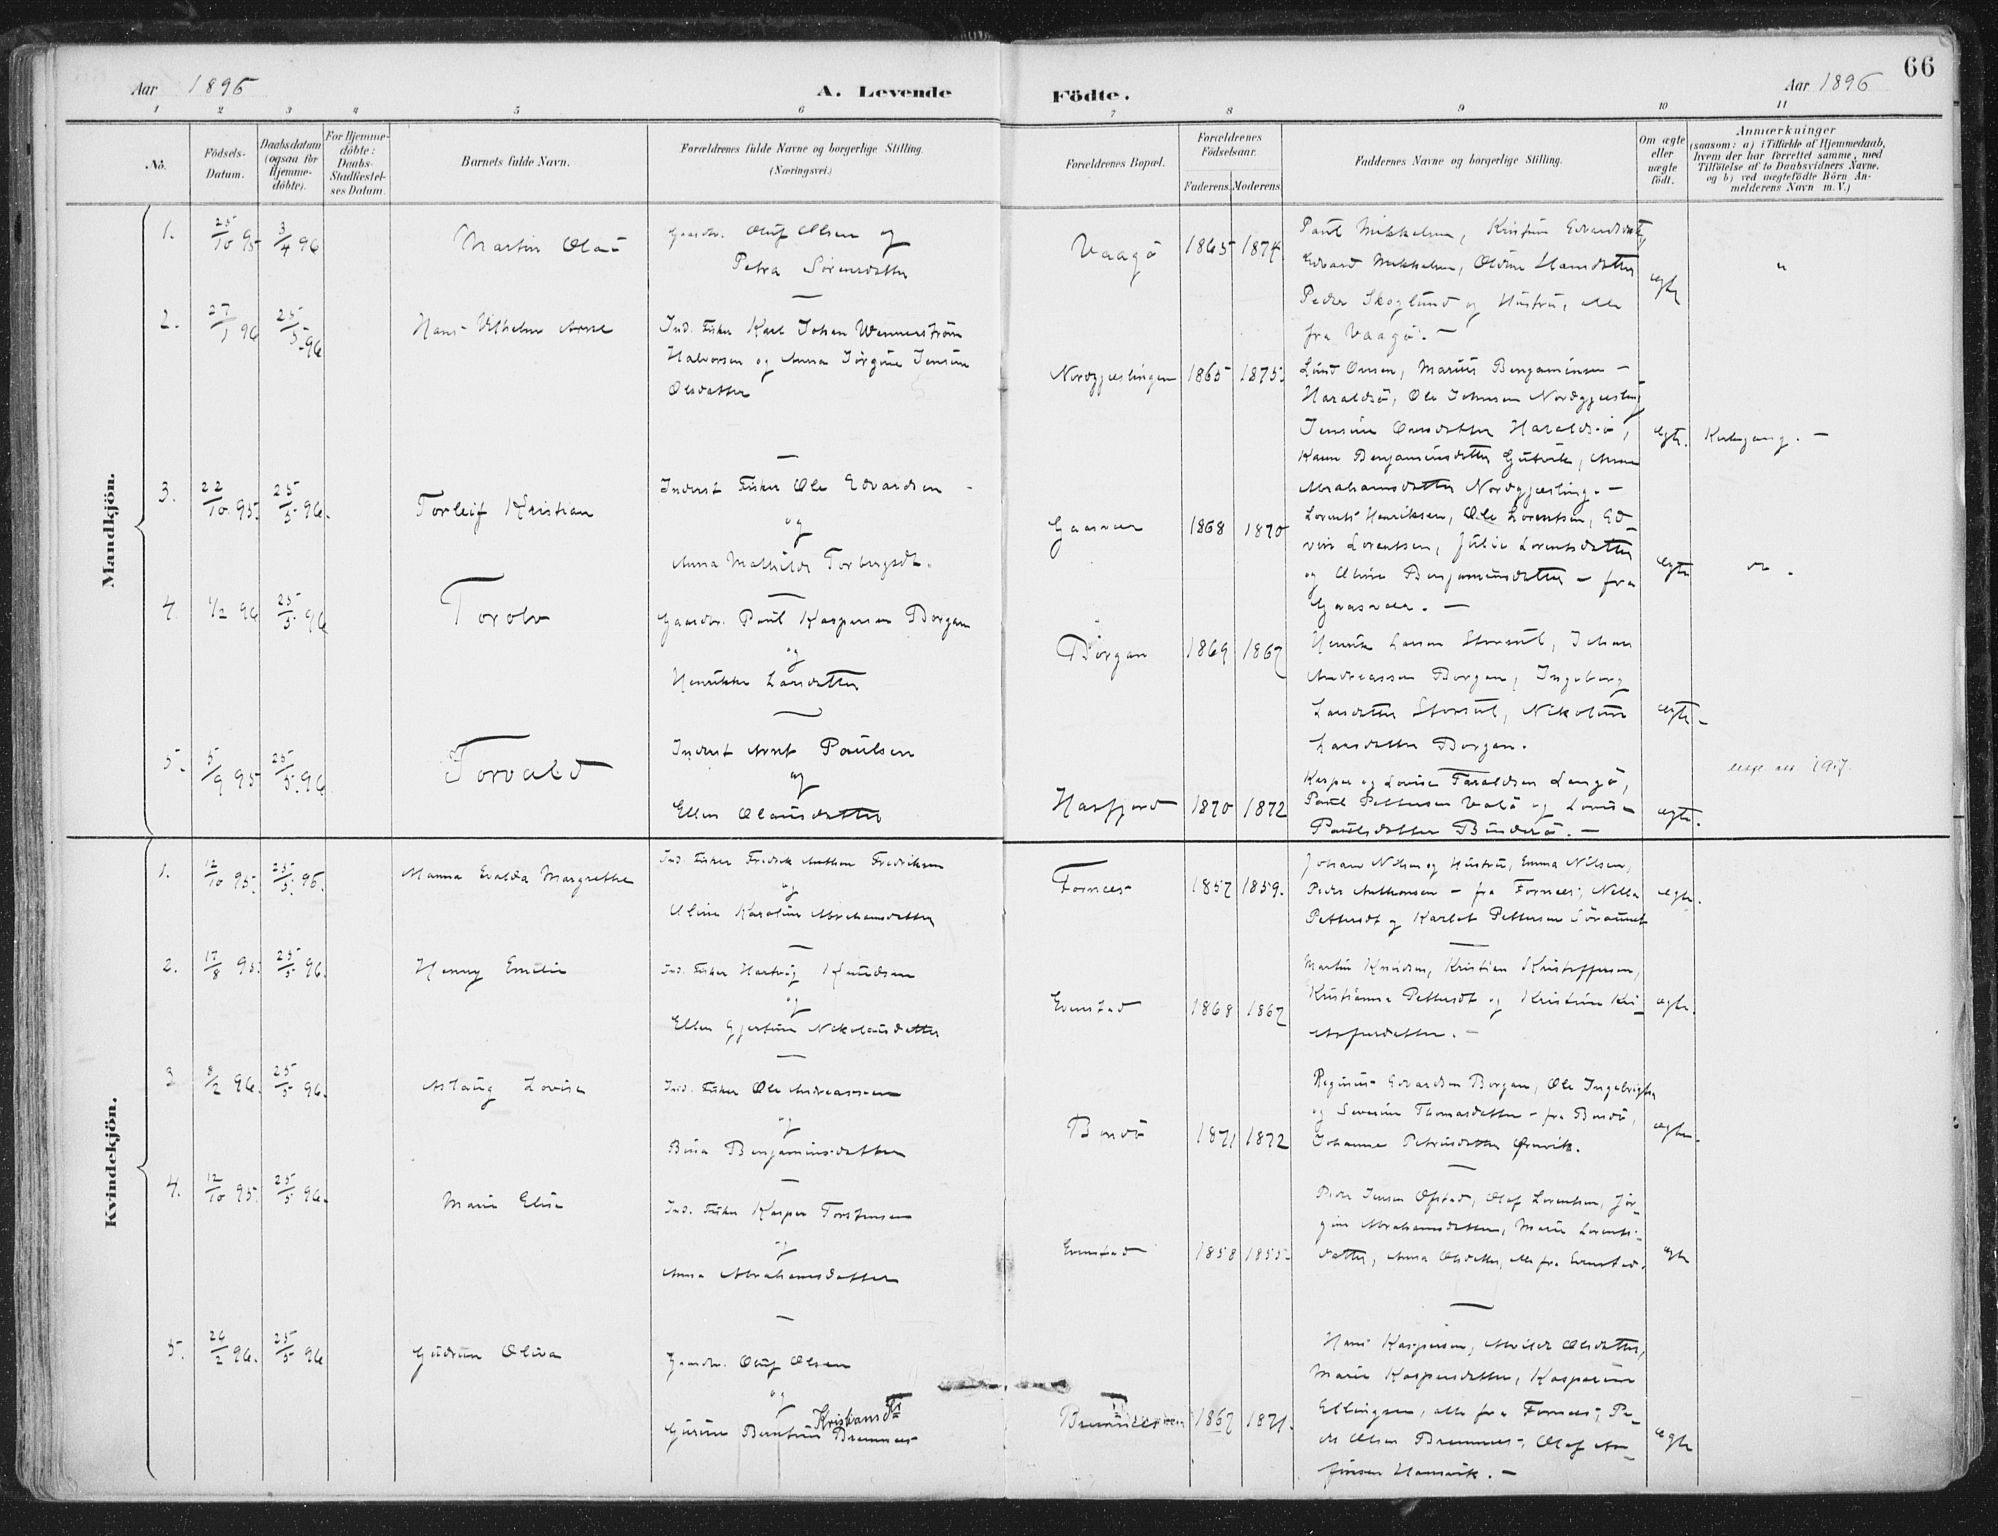 66
Aar 1896
A. Levende
Födte.
Aar 1896
1 2 3 4 5 6 7 8 9 10 11
No.
Födsels-Datum.
Daabsdatum (ogsaa for Hjemme-döbte).
For Hjemme-döbte: Daabs-Stadfæstel-ses Datum.
Barnets fulde Navn.
Forældrenes fulde Navne og borgerlige Stilling.
(Næringsvei.)
Forældrenes Bopæl.
Forældrenes Födselsaar.
Faderens. Moderens.
Faddernes Navne og borgerlige Stilling.
Om ægte eller uægte födt.
Anmærkninger
(saasom: a) i Tilfælde af Hjemmedaab,
hvem der har forrettet samme, med
Tilföielse af to Daabsvidners Navne,
og b) ved uægtefödte Börn An-
melderens Navn m. V.)
Mandkjön.
1. 25/10 95 3/4 96 Martin Olaü
Gaardbr. Oluf Olsen og
Petra Sørensdatter
Vaagö 1865 1874.
Paul Mikkelsen, Kristine Edvardsdatter,
Edvard Mikkelsen, Oldine Hansdatter
Peder Skoglund og Hustru, alle
fra Vaagö. —
egte "
2. 27/1 96 25/5 96 Hans Vilhelm Arne
Ind. Fisker Karl Johan Wennerstrøm
Halvorsen og Anna Jørgine Jensine
Olsdatter
Nordgjæslingen 1865 1875.
Marius Benjaminsen —
Haraldsö, Ole Johnsen Nordgjæsling
Jensine Haraldsö,
Karen Benjaminsdatter Gutvik, Anne
Abrahamsdatter Nordgjæsling. —
egte. Kirkegang. —
3. 22/10 95. 25/5 96. Torleif Kristian
Inderst Fisker Ole Edvardsen
og
Anna Mathilde Torbergsdt.
Gaasvær 1868 1870
Lorents Henriksen, Ole Lorentsen, Ed-
vin Lorentsen, Julie Lorentsdatter
og Oline Benjaminsdatter — fra
Gaasvær. —
egte do.
4. 1/2 96 25/5 96 Torolv
Gaardbr. Paul Kaspersen Borgan
og
Henrikke Larsdatter
Borgan 1869 1867
Henrik Larsen Storsul, Johan
Andreassen Borgan, Ingeborg
Larsdatter Storsul, Nikoline
Larsdatter Borgan.
egte.
5. 5/9 95 25/5 96 Torvald
Inderst Arnt Paulsen
og
Ellen Olausdatter
Hasfjord 1870 1872
Kasper og Lovise Faraldsen Langö,
Paul Pettersen Valö og Lovise
Paulsdatter Binderö. —
egte.
Kvindekjön.
1. 12/10 95. 25/5 96. Manna Evalda Margrethe
Ind. Fisker Fredrik Anthon Fredriksen
og
Oline Karoline Abrahamsdatter
Fornæs 1857 1859.
Johan Nilsen og Hustru, Emma Nilsen,
Peder Anthonsen — fra Fornæs; Nella
Pettersdt og Karlot Pettersen Söraunet
egte.
2. 17/8 95. 25/5 96. Henny Emilie
Ind. Fisker Hartvig Knudsen
og
Ellen Gjertine Nikolausdatter
Evenstad 1868 1867
Martin Knudsen, Kristian Kristoffersen,
Kristianna Pettersdt og Kristine Kri-
stofersdatter. —
egte.
3 8/2 96. 25/5 96. Aslaug Lovise
Ind. Fisker Ole Andreassen
og
Bina Benjaminsdatter
Bondö 1871 1872
Reginus Edvardsen Borgan, Ole Ingebrigtsen
og Severine Thomasdatter — fra Bondö,
Johanne Petrusdatter Ørnvik.
egte.
4. 12/10 95. 25/5 96. Marie Elise
Ind. Fisker Kasper Torstensen
og
Anna Abrahamsdatter
Evenstad 1858 1855.
Peder Jensen Ofstad, Olaf Lorentsen, Jör-
gine Abrahamsdatter, Marie Lorents-
datter, Anna Olsdatter, alle fra Evenstad.
egte
5. 26/2 96. 25/5 96 Gudrun Oliva
Gaardbr. Oluf Olsen
og
Gurine Berntine Kristiansdt Bremnes
Bremnes 1867 1871.
Hans Kaspersen, Alvilde Olsdatter,
Marie Kaspersdatter, Kasparine
Ellingsen, alle fra Fornæs; Pe-
der Olsen Bremnes, Olaf An-
finsen Hamvik. —
egte